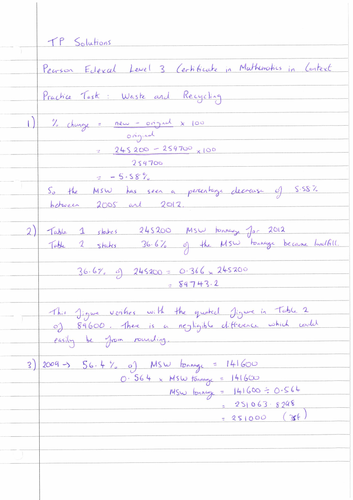 TP Solutions
Pearson Edexcel Level 3 Certificate in Mathematics in Context
Practice Task : Waste and Recycling
1) % change = new - original × 100
original
= 245200 - 259700 × 100
259700
= -5.58%
So the MSW has seen a percentage decrease of 5.58%
between 2005 and 2012.
2) Table 1 states 245200 MSW tonnage for 2012
Table 2 states 36.6% of the MSW tonnage became landfill.
36.6% of 245200 = 0.366 × 245200
= 89743.2
This figure verifies with the quoted figure in Table 2
of 89600. There is a negligible difference which could
easily be from rounding.
3) 2009 → 56.4% of MSW tonnage = 141600
0.564 × MSW tonnage = 141600
MSW tonnage = 141600 ÷ 0.564
= 251063.8298
= 251000 (3sf)